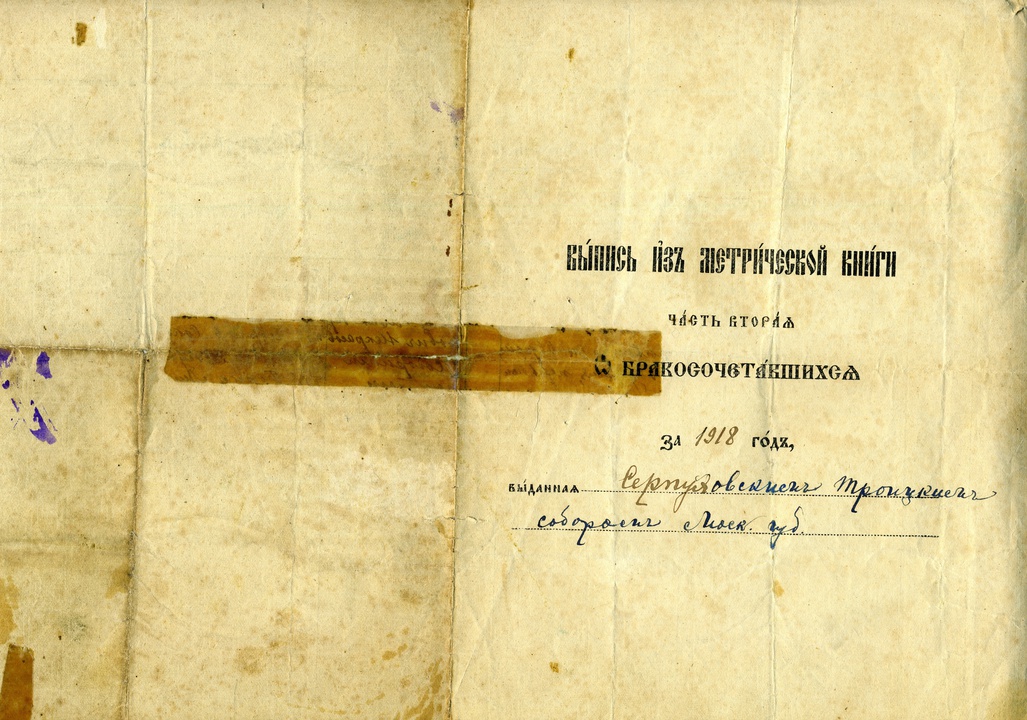 Вы́пись и҆зъ метри́ческой кни́ги
ча́сть втора́ѧ
Ѡ бракосочета́вшихсѧ
за 1918 го́дъ,
вы́данная Серпуховскимъ Троицкимъ
соборомъ Моск. губ.